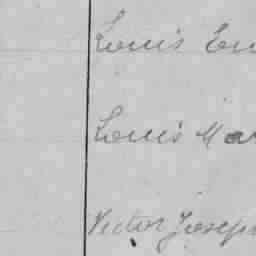 Louis
Louis Mar
Victor Joseph